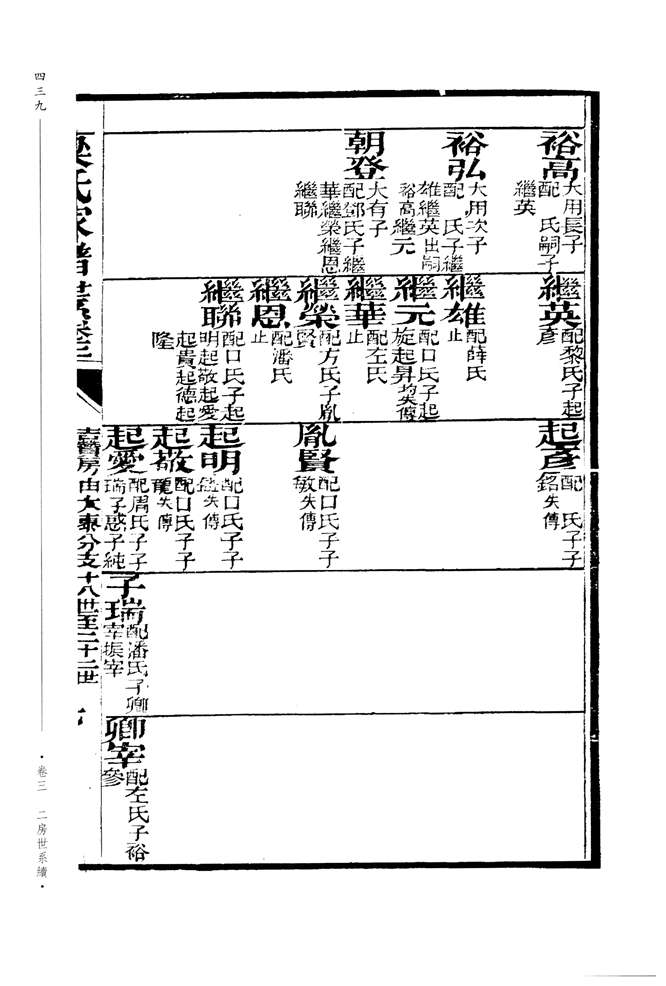 裕高
大用長子
配 氏嗣子
繼英
裕弘
大用次子
配 氏子繼
雄繼英出嗣
裕高繼元
朝登
大有子
配鄧氏子繼
華繼榮繼恩
繼聯
繼英
配黎氏子起
彥
繼雄
配薛氏
止
繼元
配口氏子起
旋起昇均失傳
繼華
配左氏
止
繼榮
配方氏子胤
賢
繼恩
配潘氏
止
繼聯
配口氏子起
明起敬起愛
起貴起德起
隆
起彥
配 氏子子
銘失傳
胤賢
配口氏子子
敏失傳
起明
配口氏子子
失傳
起敬
配口氏子子
龍失傳
起愛
配周氏子子
瑞子惑子純
子瑞
配潘氏子卿
宰振宰
卿宰
配左氏子裕
參
氏家譜
房由大泰分支十八世至二十二世
四三九
·卷三 二房世系續·